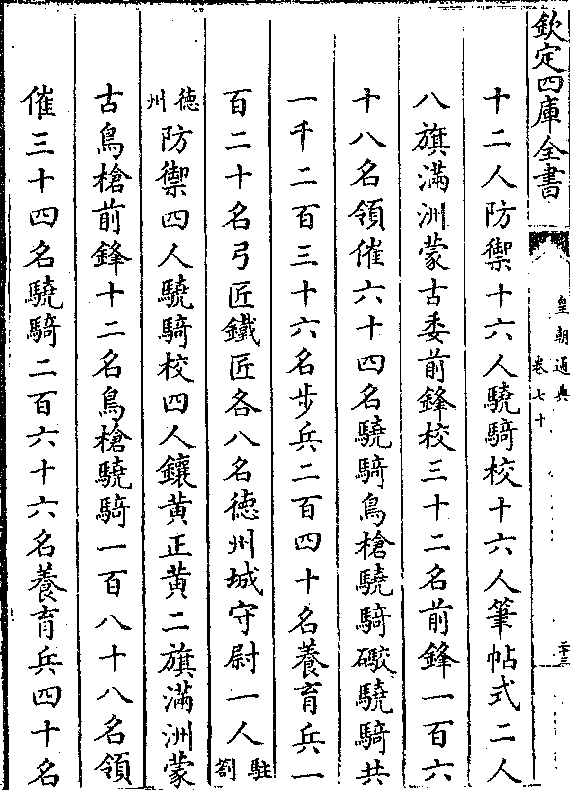 欽定四庫全書
皇朝通典
卷七十
二十三
十二人防禦十六人驍騎校十六人筆帖式二人
八旗滿洲蒙古委前鋒校三十二名前鋒一百六
十八名領催六十四名驍騎鳥槍驍騎礮驍騎共
一千二百三十六名步兵二百四十名養育兵一
百二十名弓匠鐵匠各八名德州城守尉一人駐劄
德州防禦四人驍騎校四人鑲黃正黃二旗滿洲蒙
古鳥槍前鋒十二名鳥槍驍騎一百八十八名領
催三十四名驍騎二百六十六名養育兵四十名